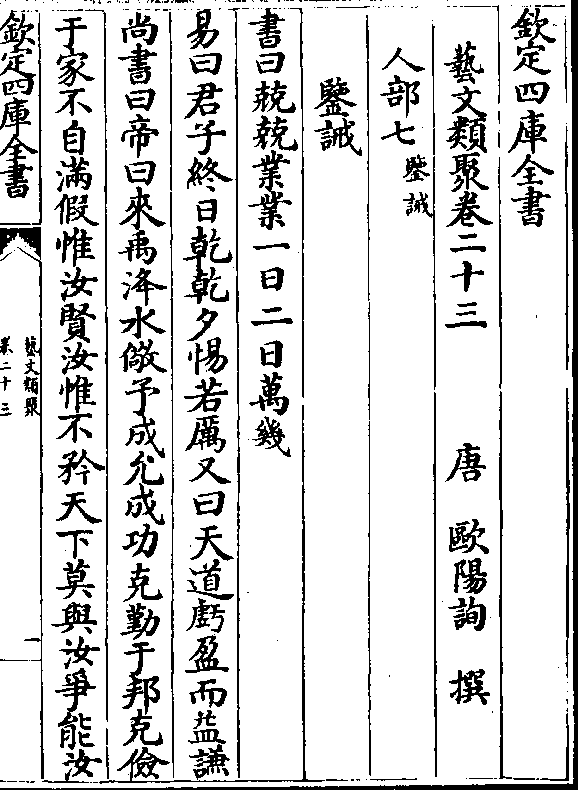 欽定四庫全書
藝文類聚卷二十三　唐　歐陽詢　撰
人部七 鑒誡
鑒誡
書曰兢兢業業一日二日萬幾
易曰君子終日乾乾夕惕若厲又曰天道虧盈而益謙
尚書曰帝曰來禹洚水儆予成允成功克勤于邦克儉
于家不自滿假惟汝賢汝惟不矜天下莫與汝爭能汝
欽定四庫全書
藝文類聚
卷二十三
一